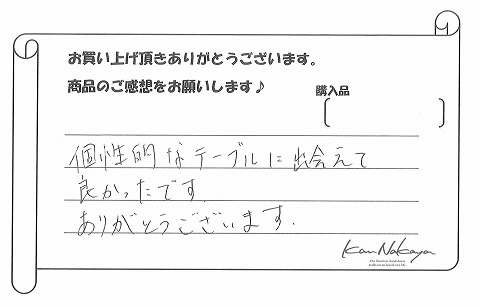 お買い上げ頂きありがとうございます。
商品のご感想をお願いします♪
購入品
個性的なテーブルに出会えて
良かったです.
ありがとうございます.
Kan Nakaya